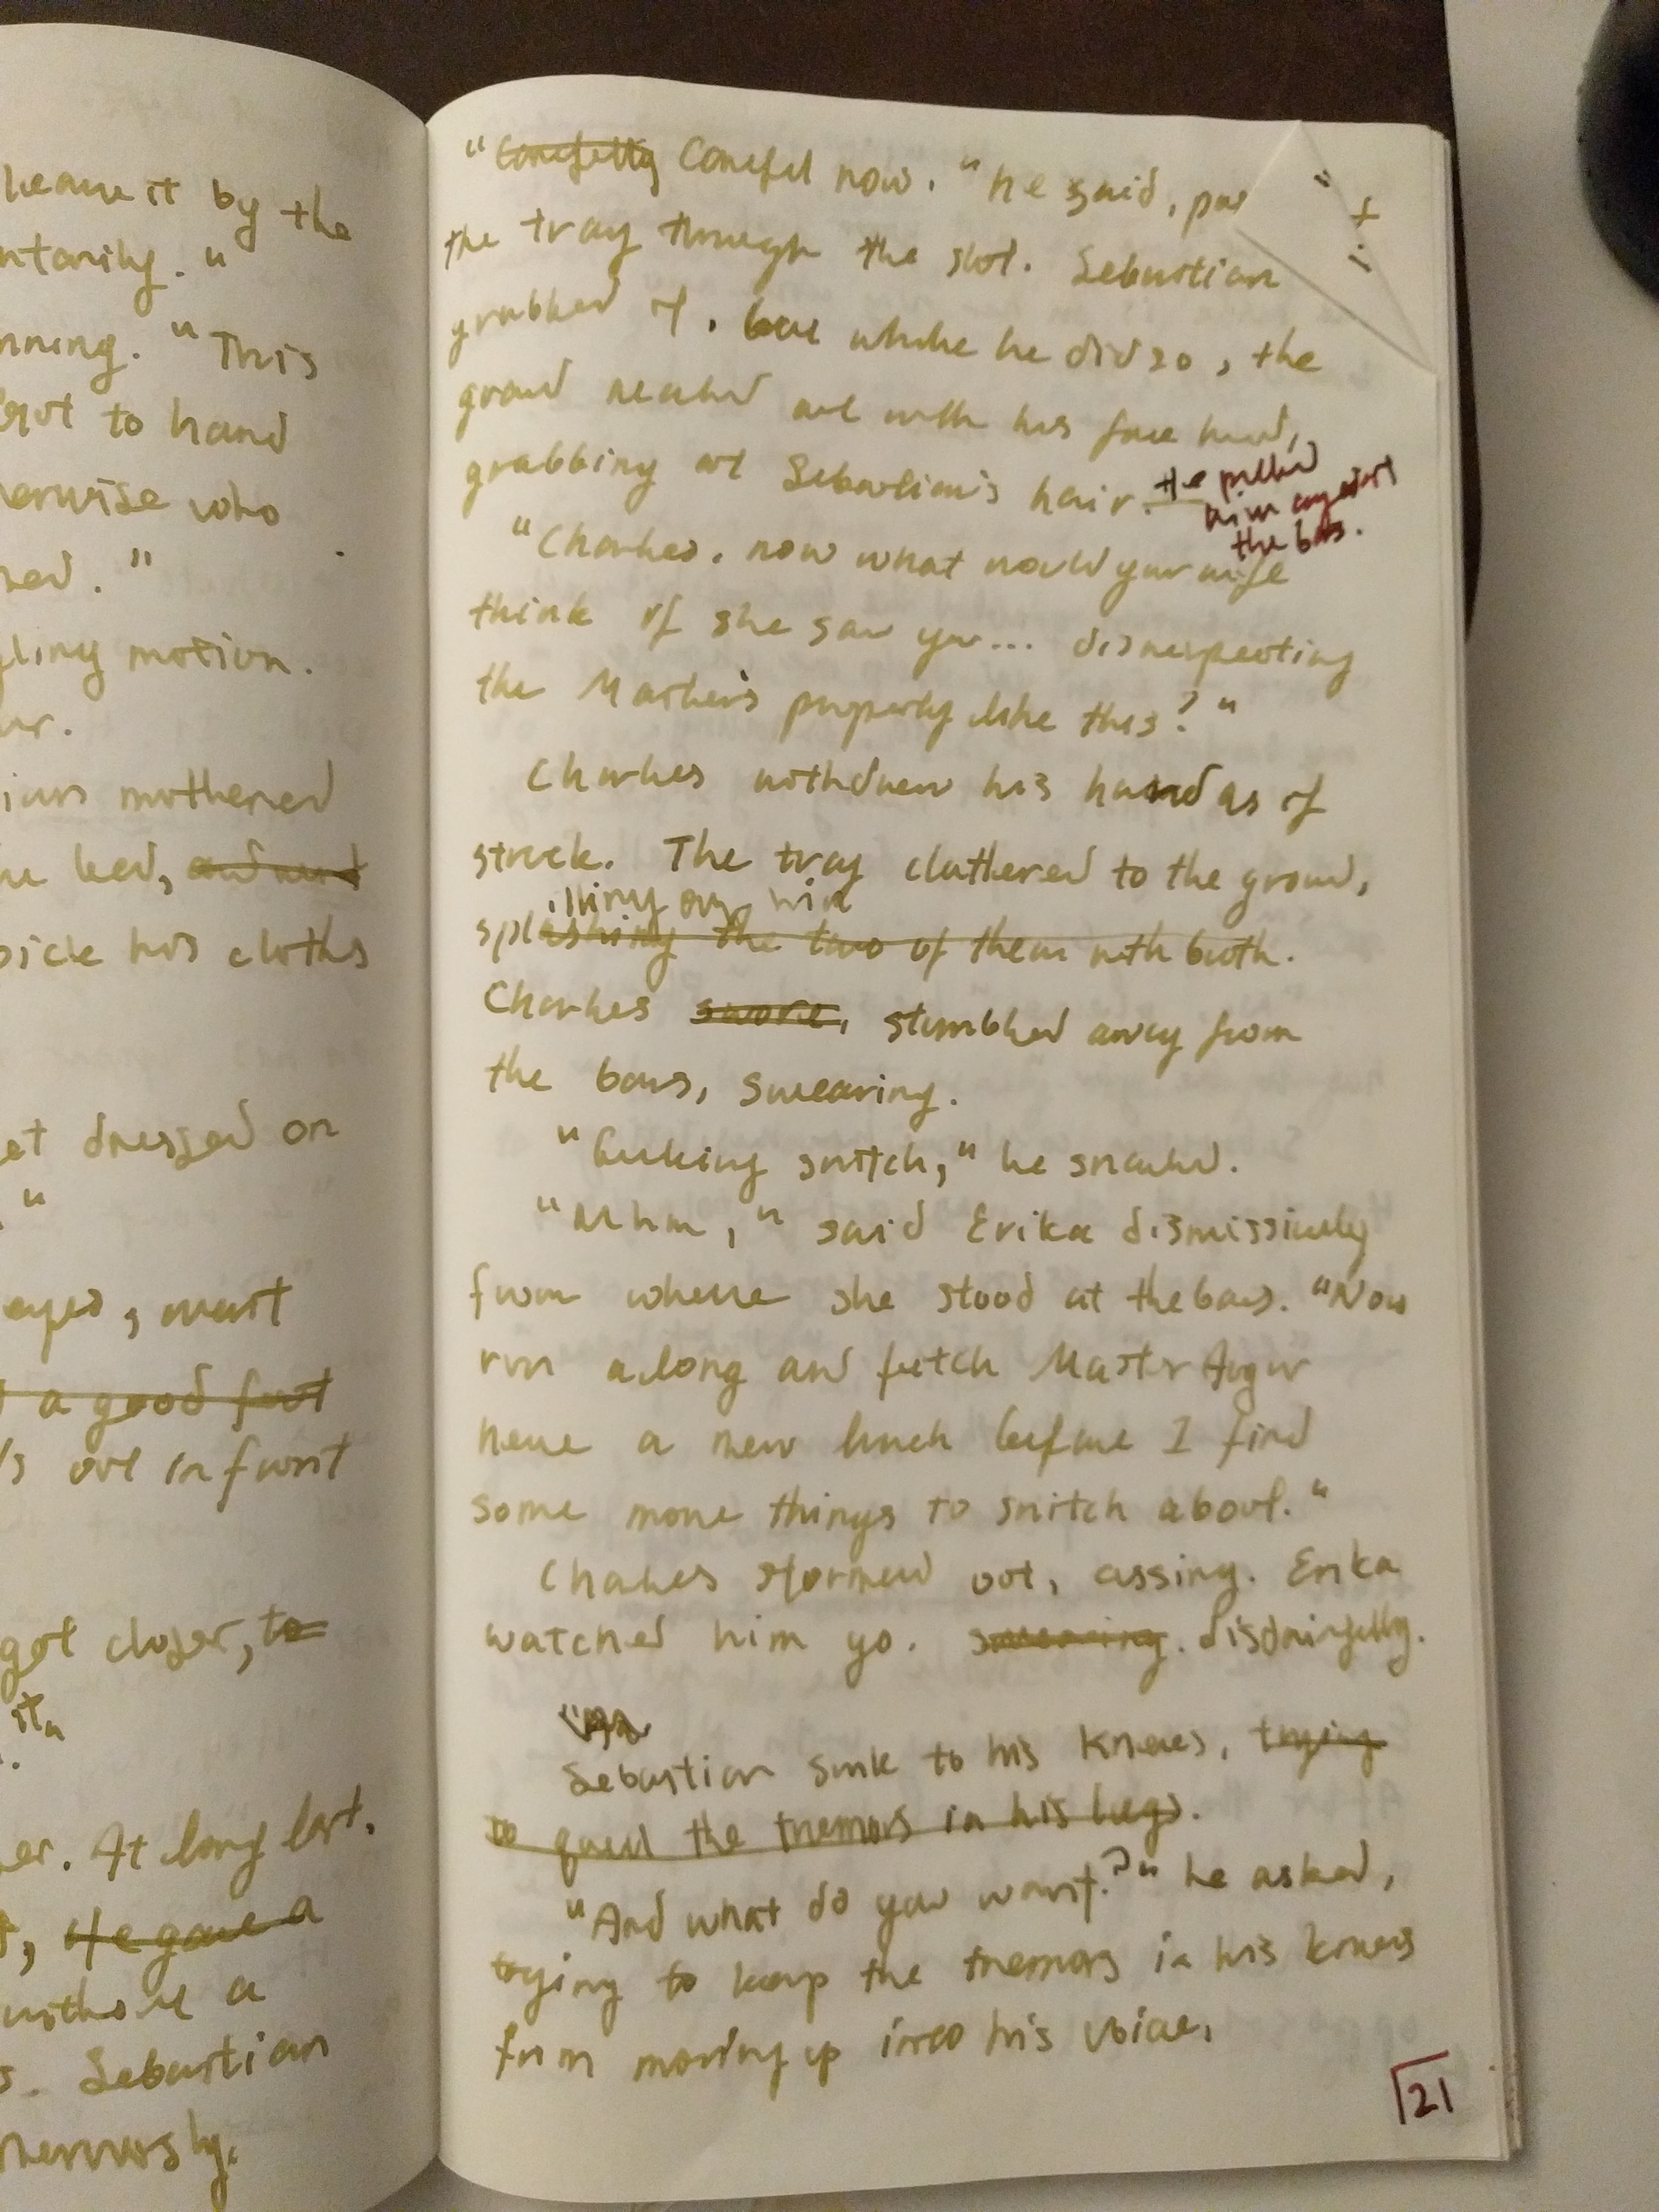 leave it by the
"
"This
to hand
who
"
motion.
mothered
bed,
his cloths
get dressed on
"
eyes, want
a good
out in front
got closer, to
it
At long last.
He gave a
without a
Sebastian
nervously.
"Carefully Careful now." he said,
the tray through the slot. Sebastian
grabbed it, but while he did so, the
guard reached out with his free hand,
grabbing at Sebastian's hair. He pulled
him against
the bars.
"Charles, now what would your wife
think if she saw you... disrespecting
the Master's property like this?"
Charles withdrew his hand as if
struck. The tray clattered to the ground,
splashing the two of them with broth.
Charles swore, stumbled away from
the bars, swearing.
"Fucking snitch," he snarled.
"Mhm," said Erika dismissively
from where she stood at the bars. "Now
run along and fetch Master
here a new lunch before I find
some more things to snitch about."
Charles stormed out, cussing. Erika
watched him go. swearing. disdainfully.
Sebastian sunk to his knees, trying
to quell the tremors in his legs.
"And what do you want?" he asked,
trying to keep the tremors in his knees
from moving up into his voice.
21